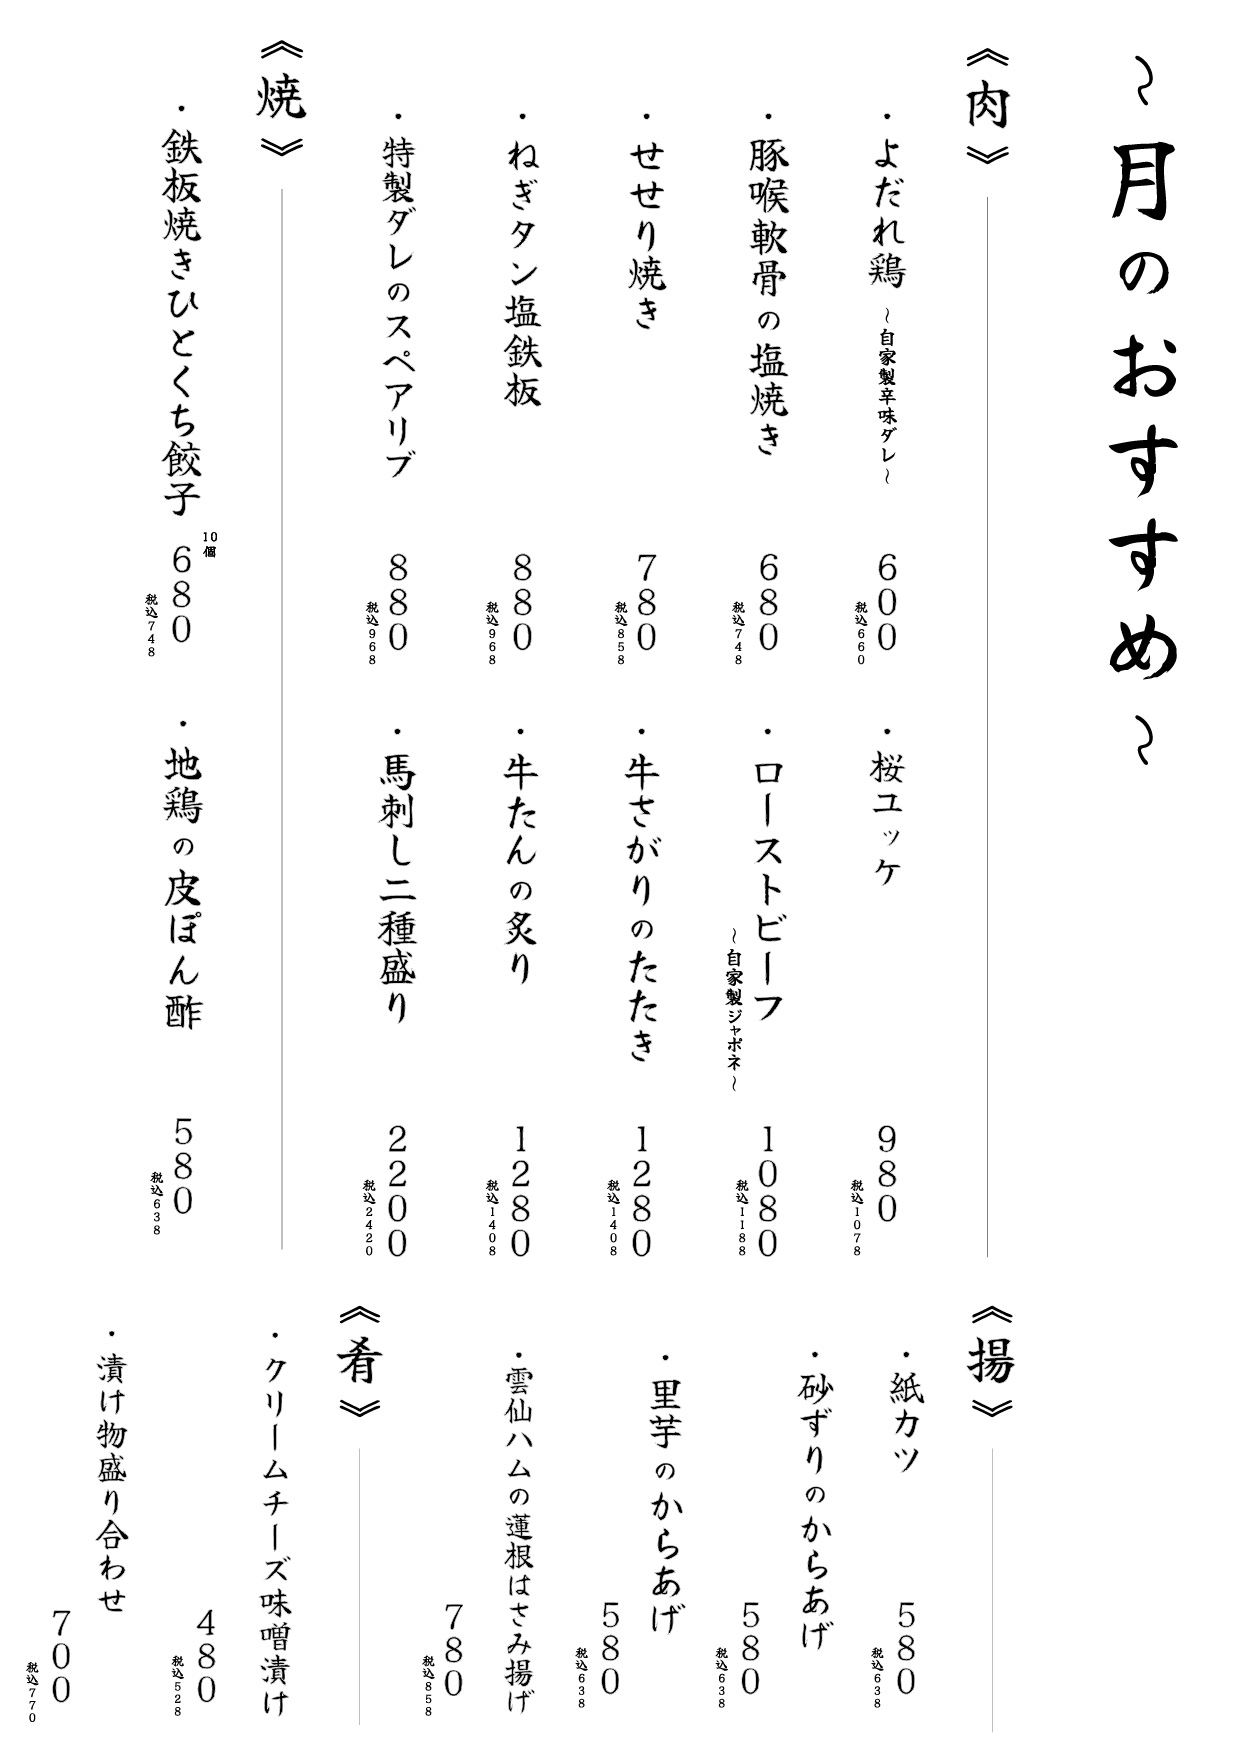 ～月のおすすめ～
《肉》
・よだれ鶏 ～自家製辛味ダレ～
600
税込660
・豚喉軟骨の塩焼き
680
税込748
・せせり焼き
780
税込858
・ねぎタン塩鉄板
880
税込968
・特製ダレのスペアリブ
880
税込968
・桜ユッケ
980
税込1078
・ローストビーフ
～自家製ジャポネ～
1080
税込1188
・牛さがりのたたき
1280
税込1408
・牛たんの炙り
1280
税込1408
・馬刺し二種盛り
2200
税込2420
《焼》
・鉄板焼きひとくち餃子
10個
680
税込748
・地鶏の皮ぽん酢
580
税込638
《揚》
・紙カツ
580
税込638
・砂ずりのからあげ
580
税込638
・里芋のからあげ
580
税込638
・雲仙ハムの蓮根はさみ揚げ
780
税込858
《肴》
・クリームチーズ味噌漬け
480
税込528
・漬け物盛り合わせ
700
税込770